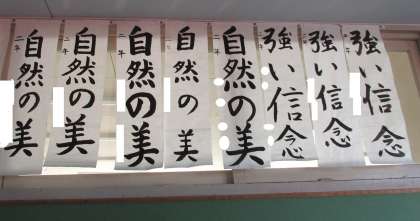 強い信念
強い信念
強い信念
自然の美
二年
自然の美
自然の美
二年
自然の美
二年
自然の美
二年